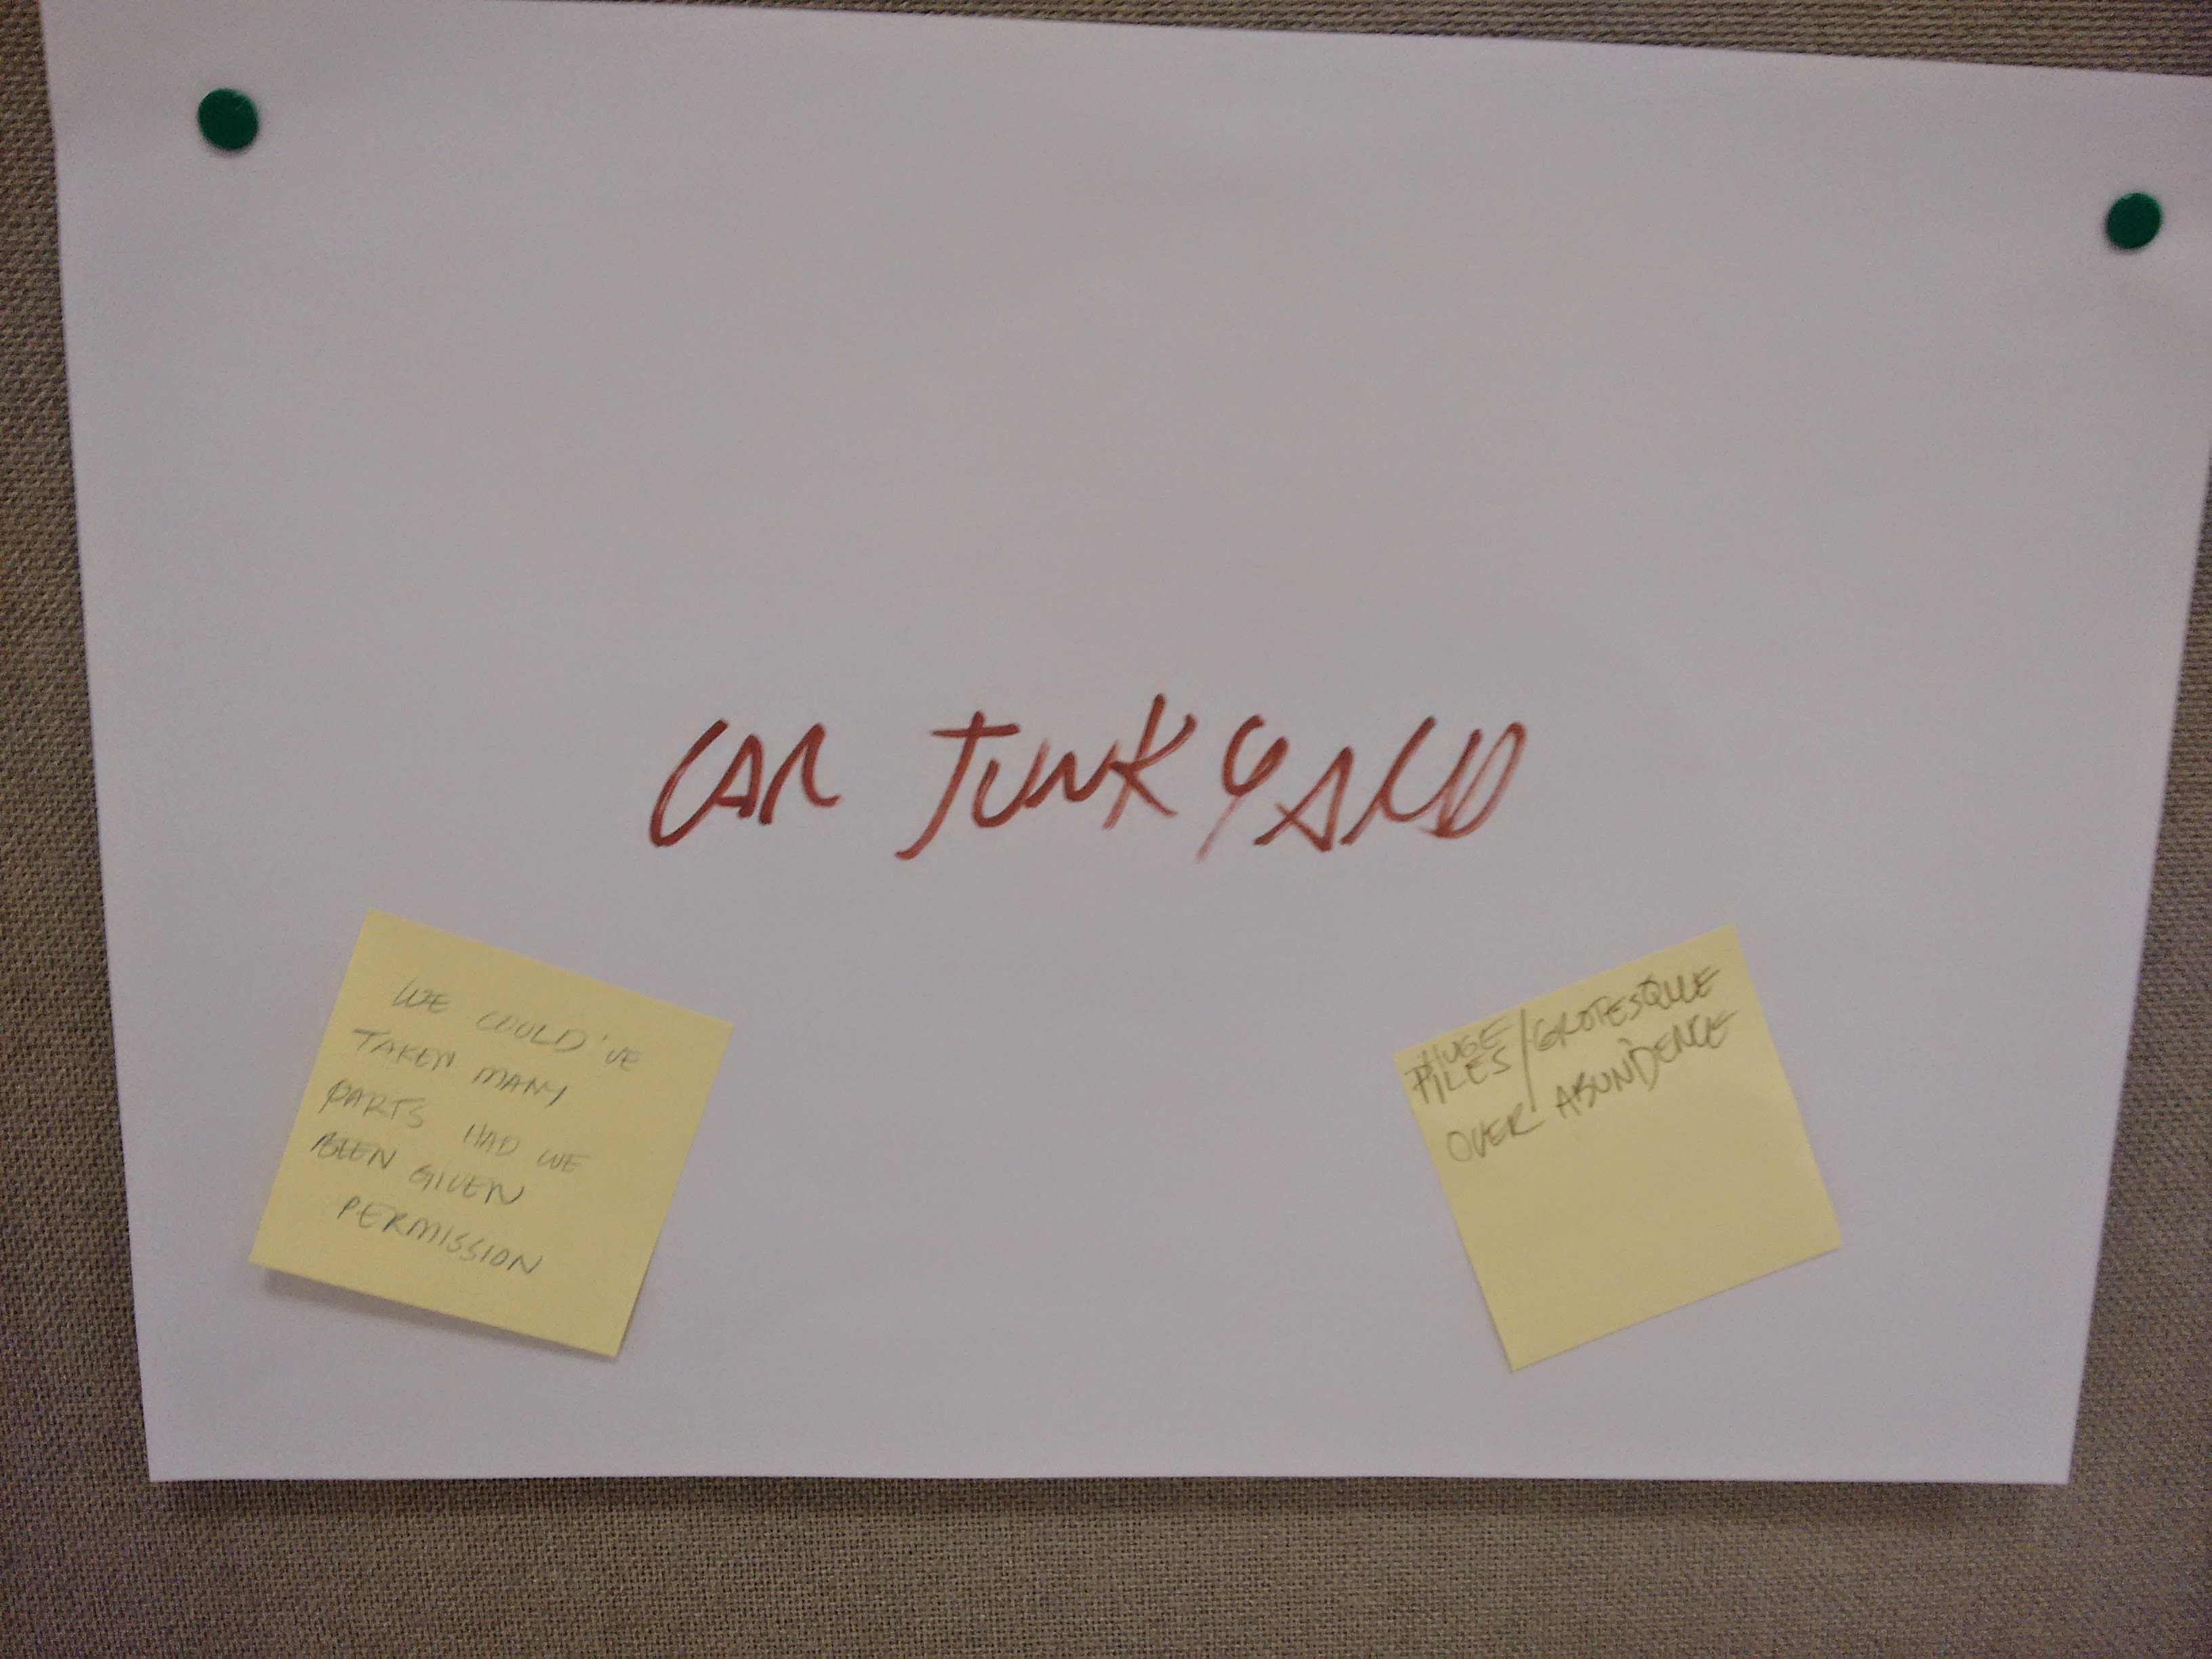 CAR JUNKYARD
WE COULD'VE
TAKEN MANY
PARTS HAD WE
BEEN GIVEN
PERMISSION
HUGE
PILES/GROTESQUE
OVER ABUNDENCE